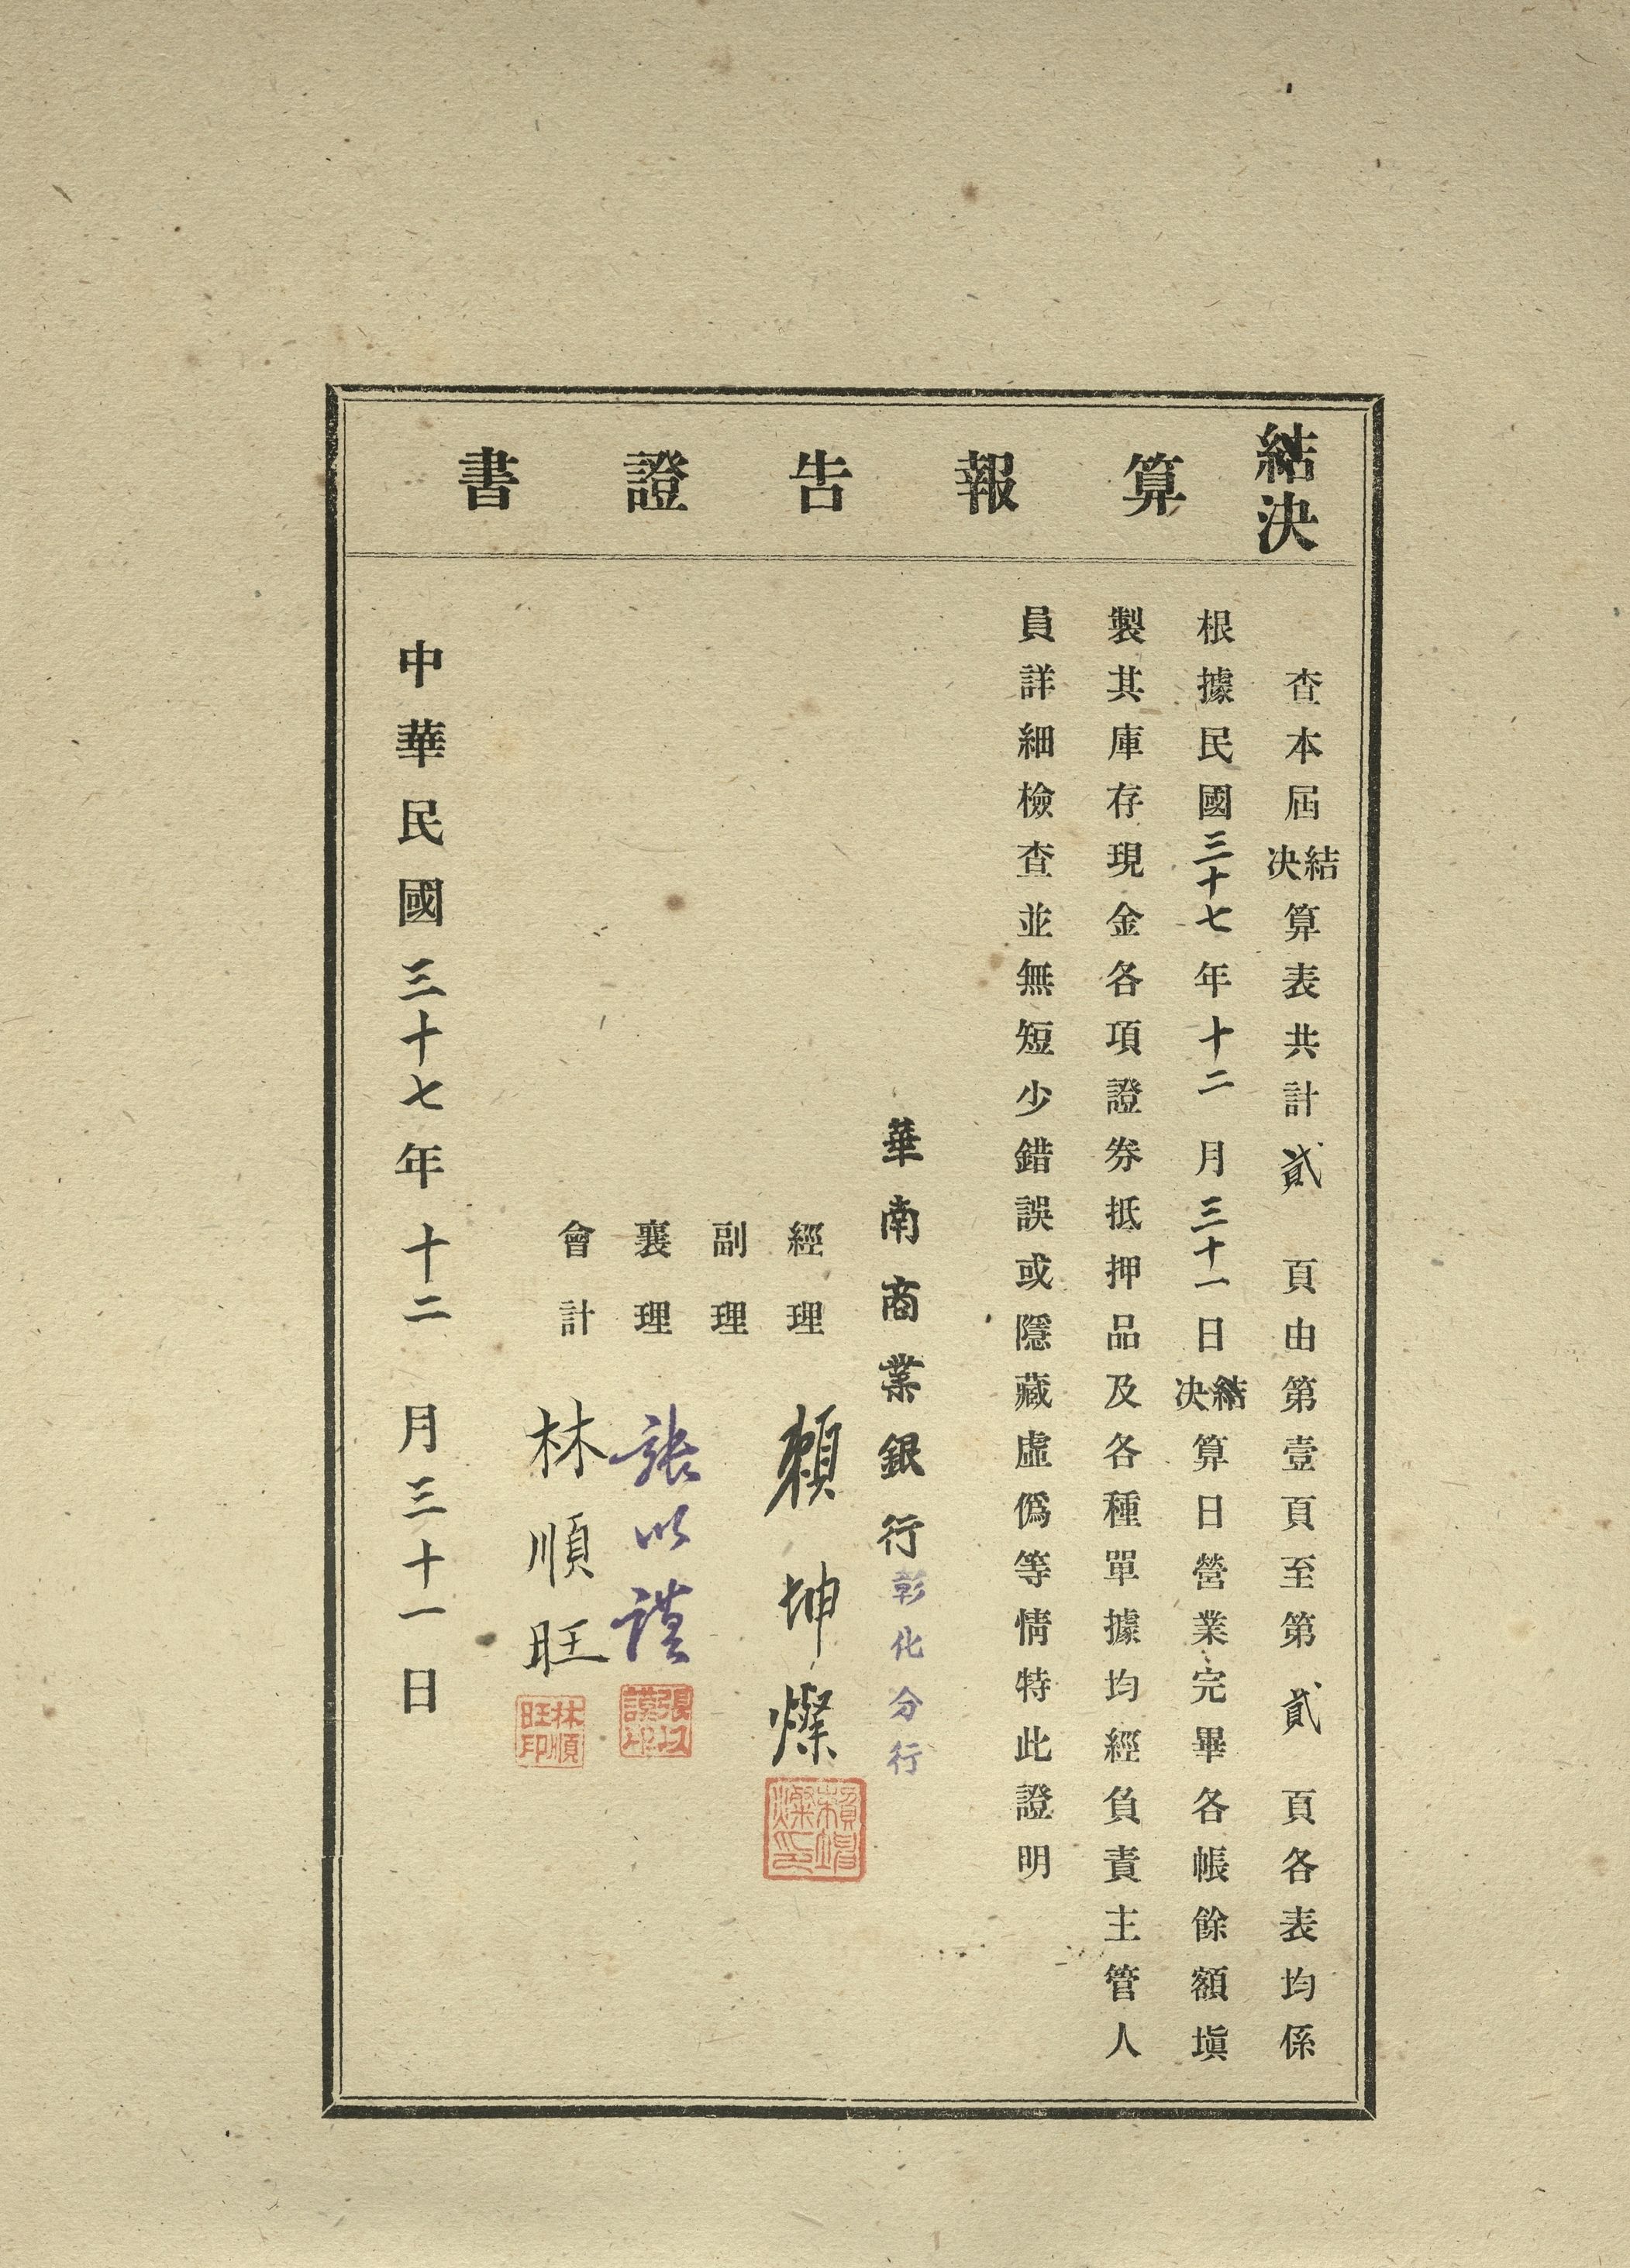 結決算報告證書
查本屆結決算表共計貳頁由第壹頁至第貳頁各表均係
根據民國三十七年十二月三十一日結決算日營業完畢各帳餘額塡
製其庫存現金各項證券抵押品及各種單據均經負責主管人
員詳細檢查並無短少錯誤或隱藏虛僞等情特此證明
華南商業銀行彰化分行
經理 賴坤燦
副理
襄理 張以謨 張以謨印
會計 林順旺 林順旺印
中華民國三十七年十二月三十一日